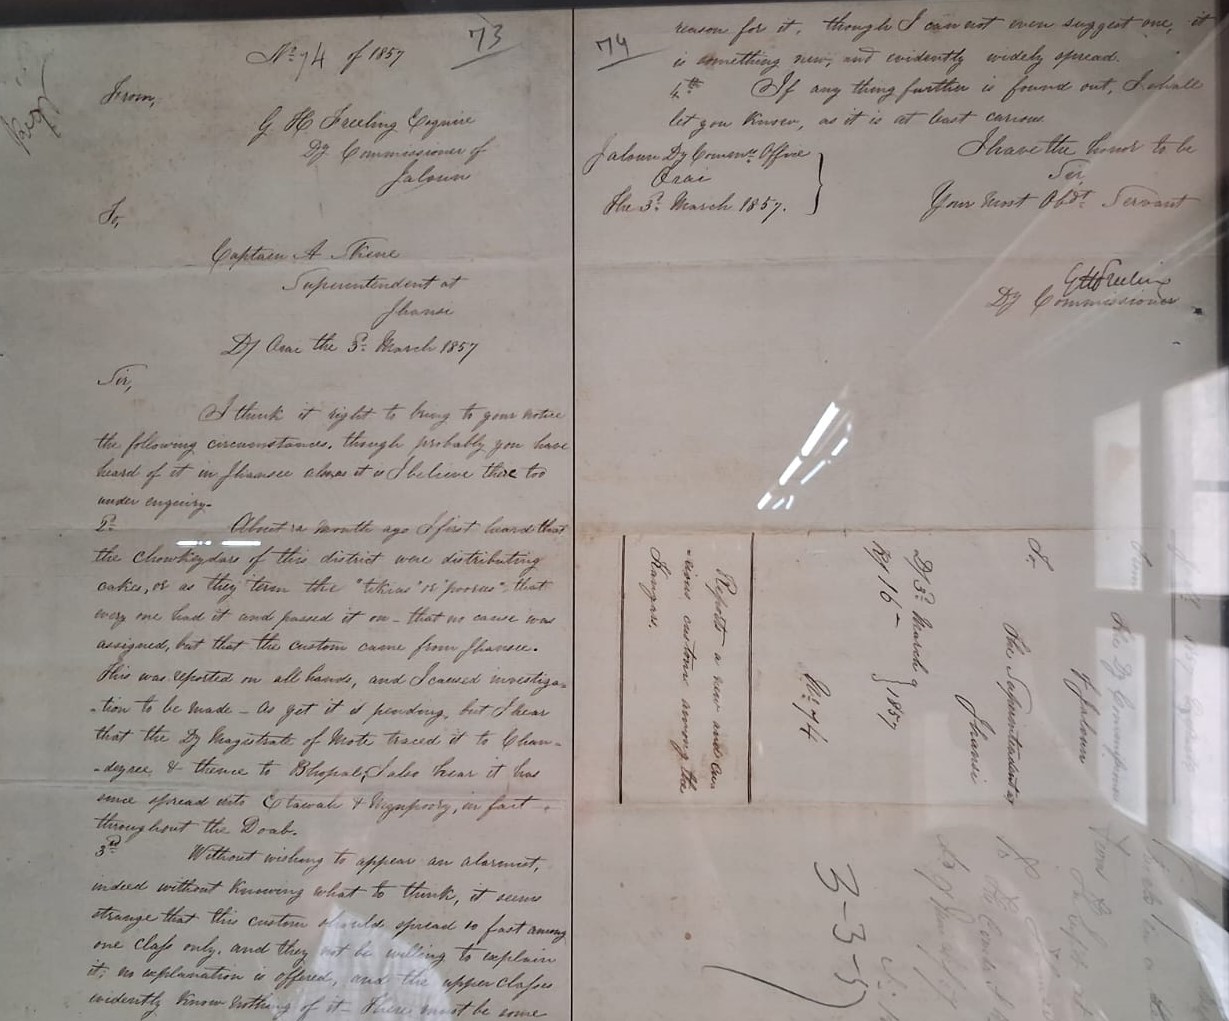 73
No. 74 of 1857
From,
G H Freeling Esquire
Dy Commissioner of
Jaloun
To,
Captain A Skene
Superintendent at
Jhansi
Dy Orai the 3d. March 1857
Sir,
I think it right to bring to your notice
the following circumstances, though probably you have
heard of it in Jhansee also as it is I believe there too
under enquiry.
2d. About a month ago I first heard that
the chowkeydars of this district were distributing
cakes, or as they term the "tikias" or "poories" - that
every one had it and passed it on - that no cause was
assigned, but that the custom came from Jhansee.
This was reported on all hands, and I caused investiga-
-tion to be made - As yet it is pending, but I hear
that the Dy Magistrate of Mote traced it to Chan-
-deyree, & thence to Bhopal, I also hear it has
since spread into Etawah & Mynpoory, in fact -
throughout the Doab.
3rd Without wishing to appear an alarmist,
indeed without knowing what to think, it seems
strange that this custom should spread so fast among
one class only, and they not be willing to explain
it; no explanation is offered, and the upper classes
evidently know nothing of it - There must be some
74
reason for it, though I can not even suggest one, it
is something new, and evidently widely spread.
4th. If any thing further is found out, I shall
let you know, as it is at least curious
I have the honor to be
Sir,
Your most Obdt. Servant
Jaloun Dy Commrs. Office
Orai
The 3d. March 1857.
GHFreeling
Dy Commissioner
The Dy Commissioner
of Jaloun
To,
The Superintendent at
Jhansi
Dy 3d. March
16 -
1857
No. 74
Reports a new and cu-
-rious custom among the
3-3-5